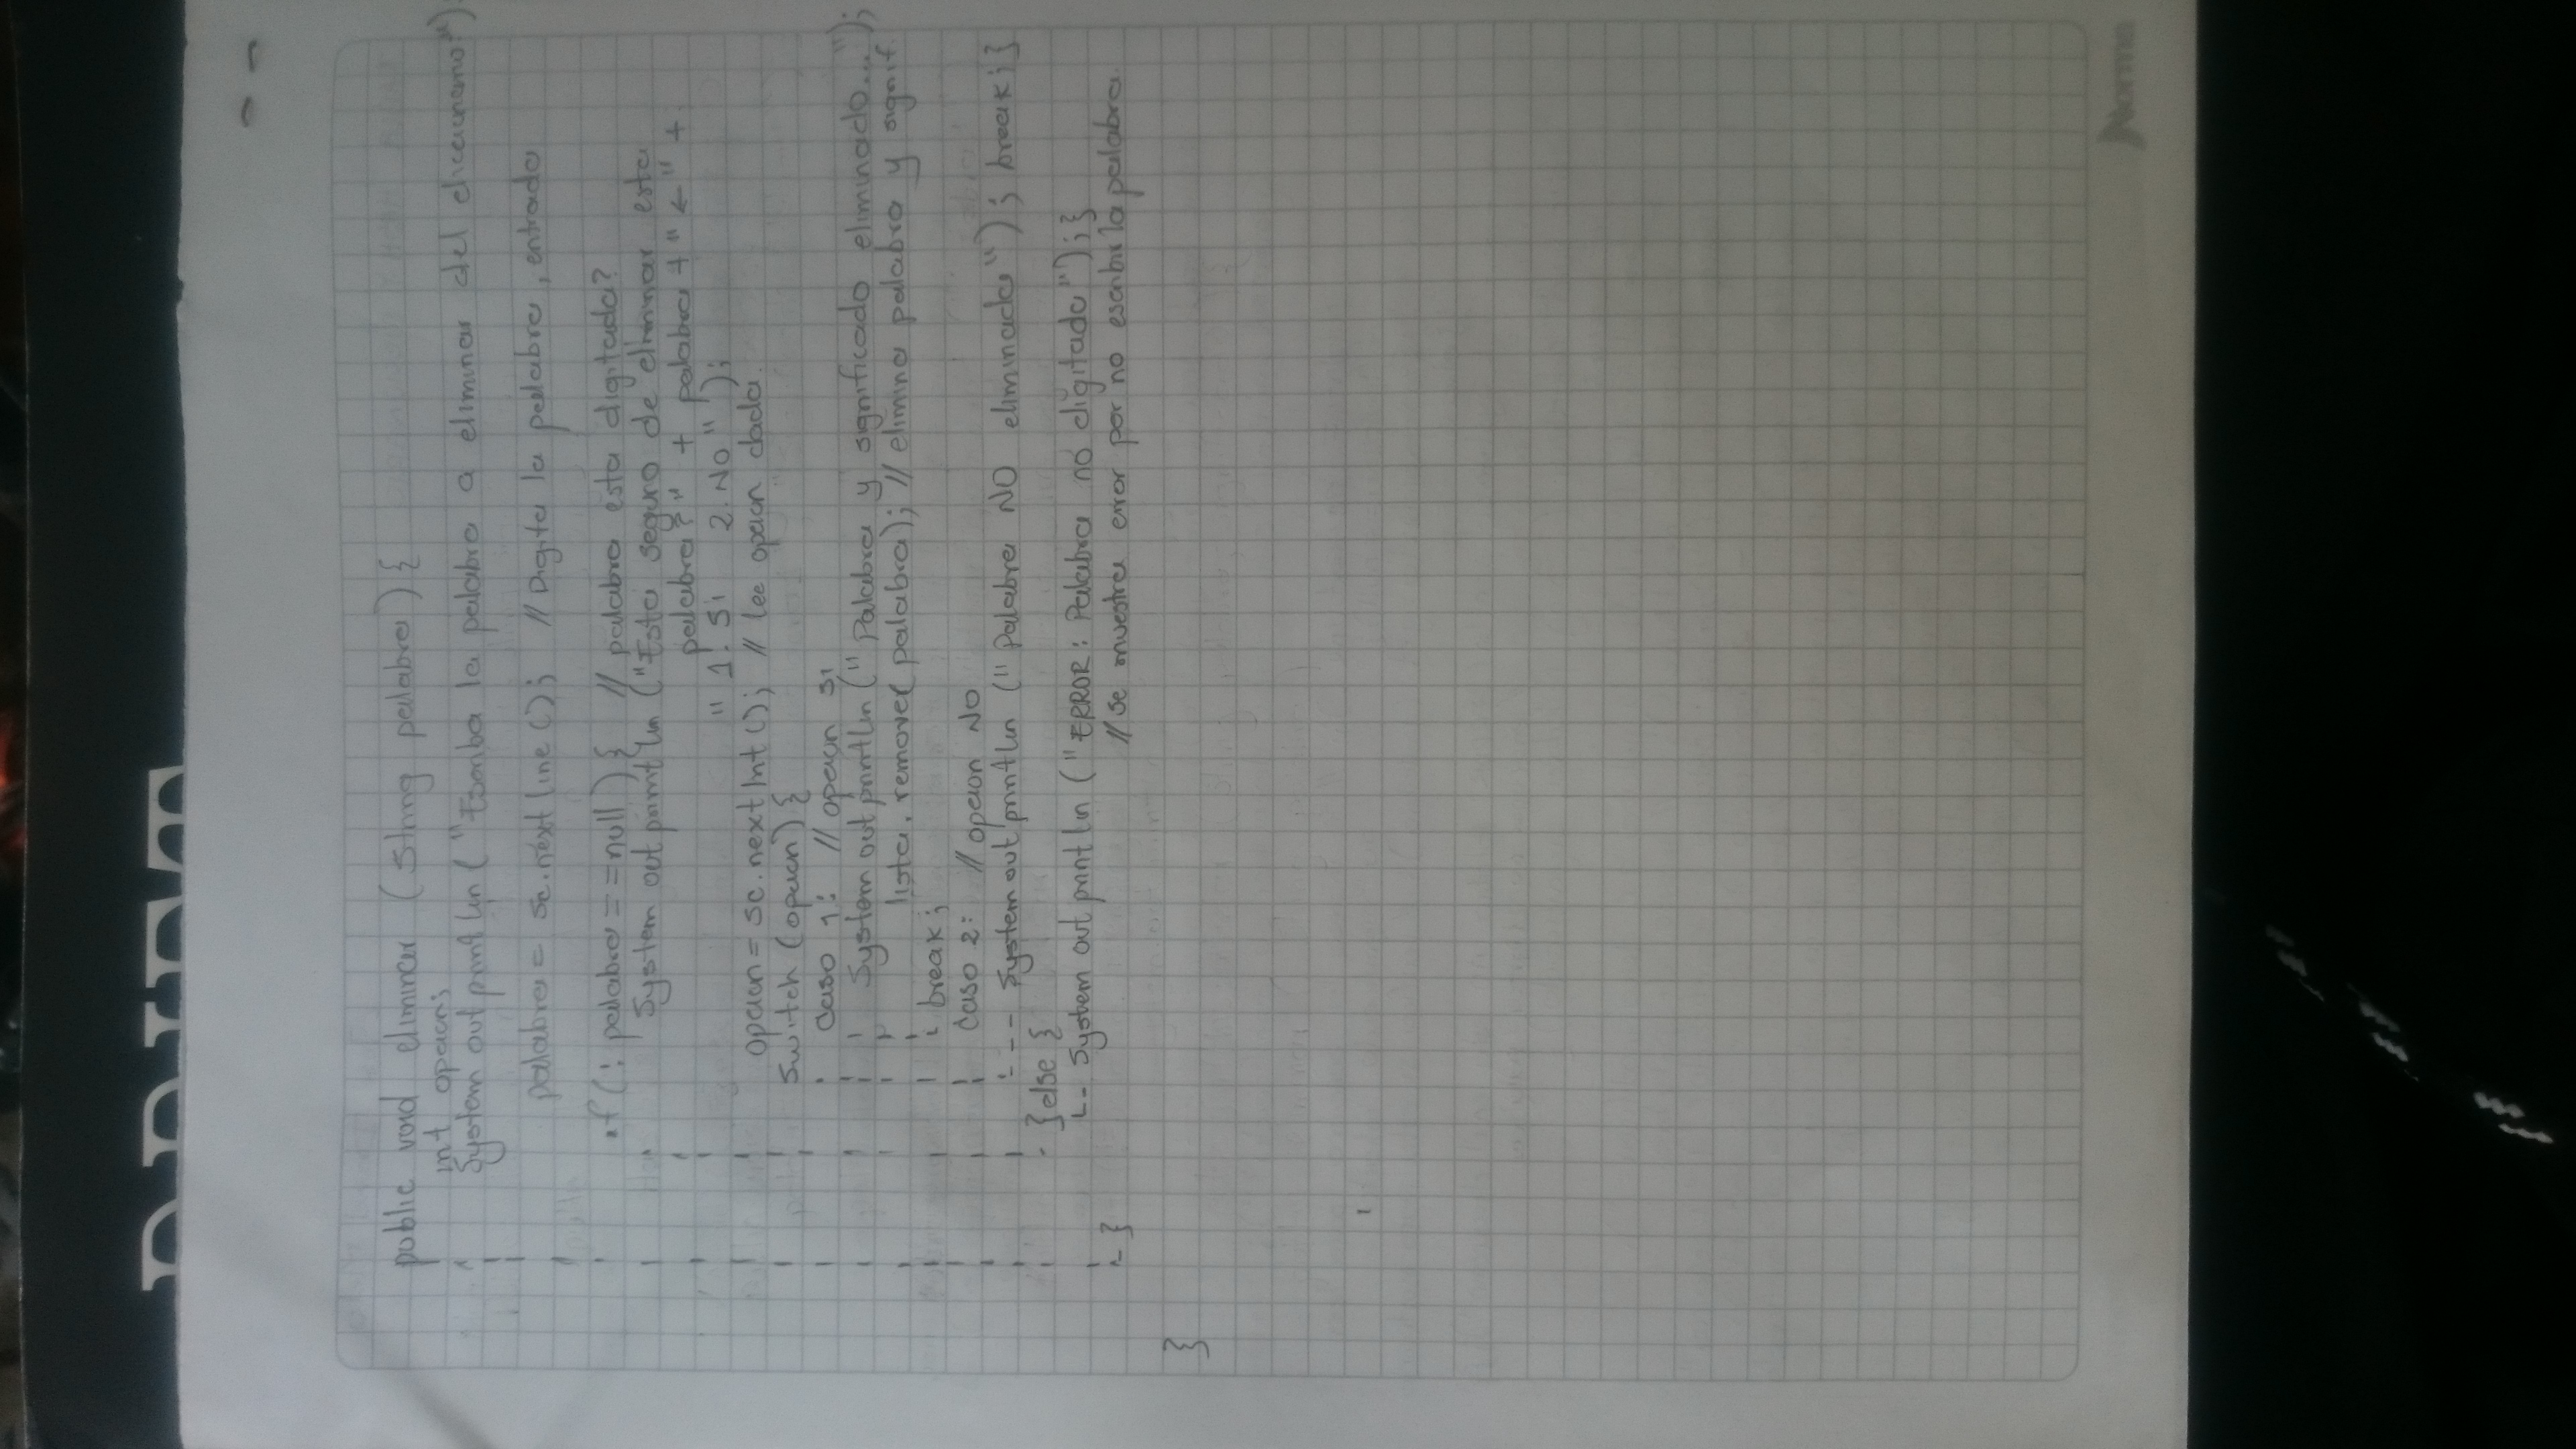 DRIFT
public void eliminar (String palabra) {
int opcion;
System out println ("Escriba la palabra a eliminar del diccionario:")
palabra = sc.next line (); // Digita la palabra, entrada
if (! palabra == null) { // palabra esta digitada?
System out println ("Esta seguro de eliminar esta
palabra?" + palabra + "←" +
" 1. Si 2. No" );
opcion = sc.next Int (); // lee opcion dada.
Switch (opcion) {
caso 1: // opcion si
System out println (" Palabra y significado eliminado...");
lista. remove( palabra); // elimina palabra y signif.
break;
caso 2: // opcion NO
System out println (" Palabra NO eliminada"); break; }
} else {
System out println ("ERROR: Palabra no digitada"); }
} // se muestra error por no escribir la palabra.
}
Norma